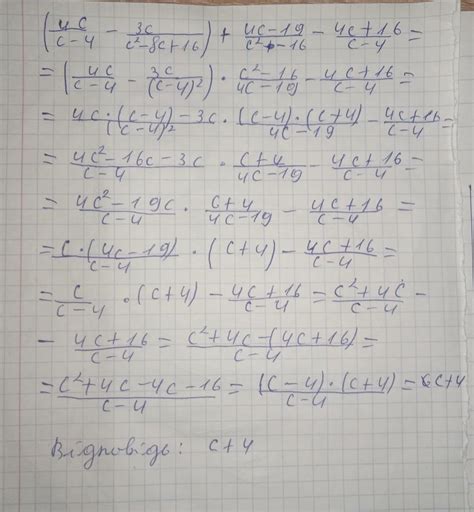 (4c/(c-4) - 3c/(c²-8c+16)) + (4c-19)/(c²-16) - (4c+16)/(c-4) =
= (4c/(c-4) - 3c/(c-4)²) · (c²-16)/(4c-19) - (4c+16)/(c-4) =
= (4c·(c-4)-3c)/(c-4)² · ((c-4)·(c+4))/(4c-19) - (4c+16)/(c-4) =
= (4c²-16c-3c)/(c-4) · (c+4)/(4c-19) - (4c+16)/(c-4) =
= (4c²-19c)/(c-4) · (c+4)/(4c-19) - (4c+16)/(c-4) =
= (c·(4c-19))/(c-4) · (c+4) - (4c+16)/(c-4) =
= c/(c-4) · (c+4) - (4c+16)/(c-4) = (c²+4c)/(c-4) -
- (4c+16)/(c-4) = (c²+4c-(4c+16))/(c-4) =
= (c²+4c-4c-16)/(c-4) = ((c-4)·(c+4))/(c-4) = c+4
Відповідь: c+4